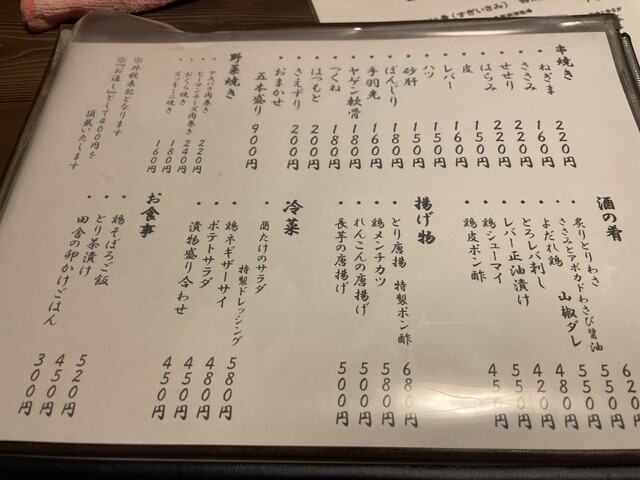 串焼き
・ねぎま 220円
・ささみ 160円
・せせり 220円
・はらみ 220円
・皮 150円
・レバー 160円
・ハツ 150円
・砂肝 150円
・ぼんじり 180円
・手羽先 160円
・ヤゲン軟骨 180円
・つくね 180円
・はつもと 200円
・さえずり 200円
・おまかせ
五本盛り 900円
野菜焼き
・アスパラ肉巻き 220円
・ピーマンチーズ肉巻き 240円
・おくら焼き 180円
・ズッキーニ焼き 160円
※外税表記となります
※『お通し』として400円を
頂戴いたします
酒の肴
・炙りとりわさ 620円
・ささみとアボカドわさび醤油 550円
・よだれ鶏 山椒ダレ 550円
・とろレバ刺し 480円
・レバー正油漬け 420円
・鶏シューマイ 550円
・鶏皮ポン酢 450円
揚げ物
・とり唐揚 特製ポン酢 680円
・鶏メンチカツ 580円
・れんこんの唐揚げ 500円
・長芋の唐揚げ 500円
冷菜
・茴たけのサラダ
特製ドレッシング 580円
・鶏ネギザーサイ 480円
・ポテトサラダ 450円
・漬物盛り合わせ 450円
お食事
・鶏そぼろご飯 520円
・とり茶漬け 450円
・田舎の卵かけごはん 300円